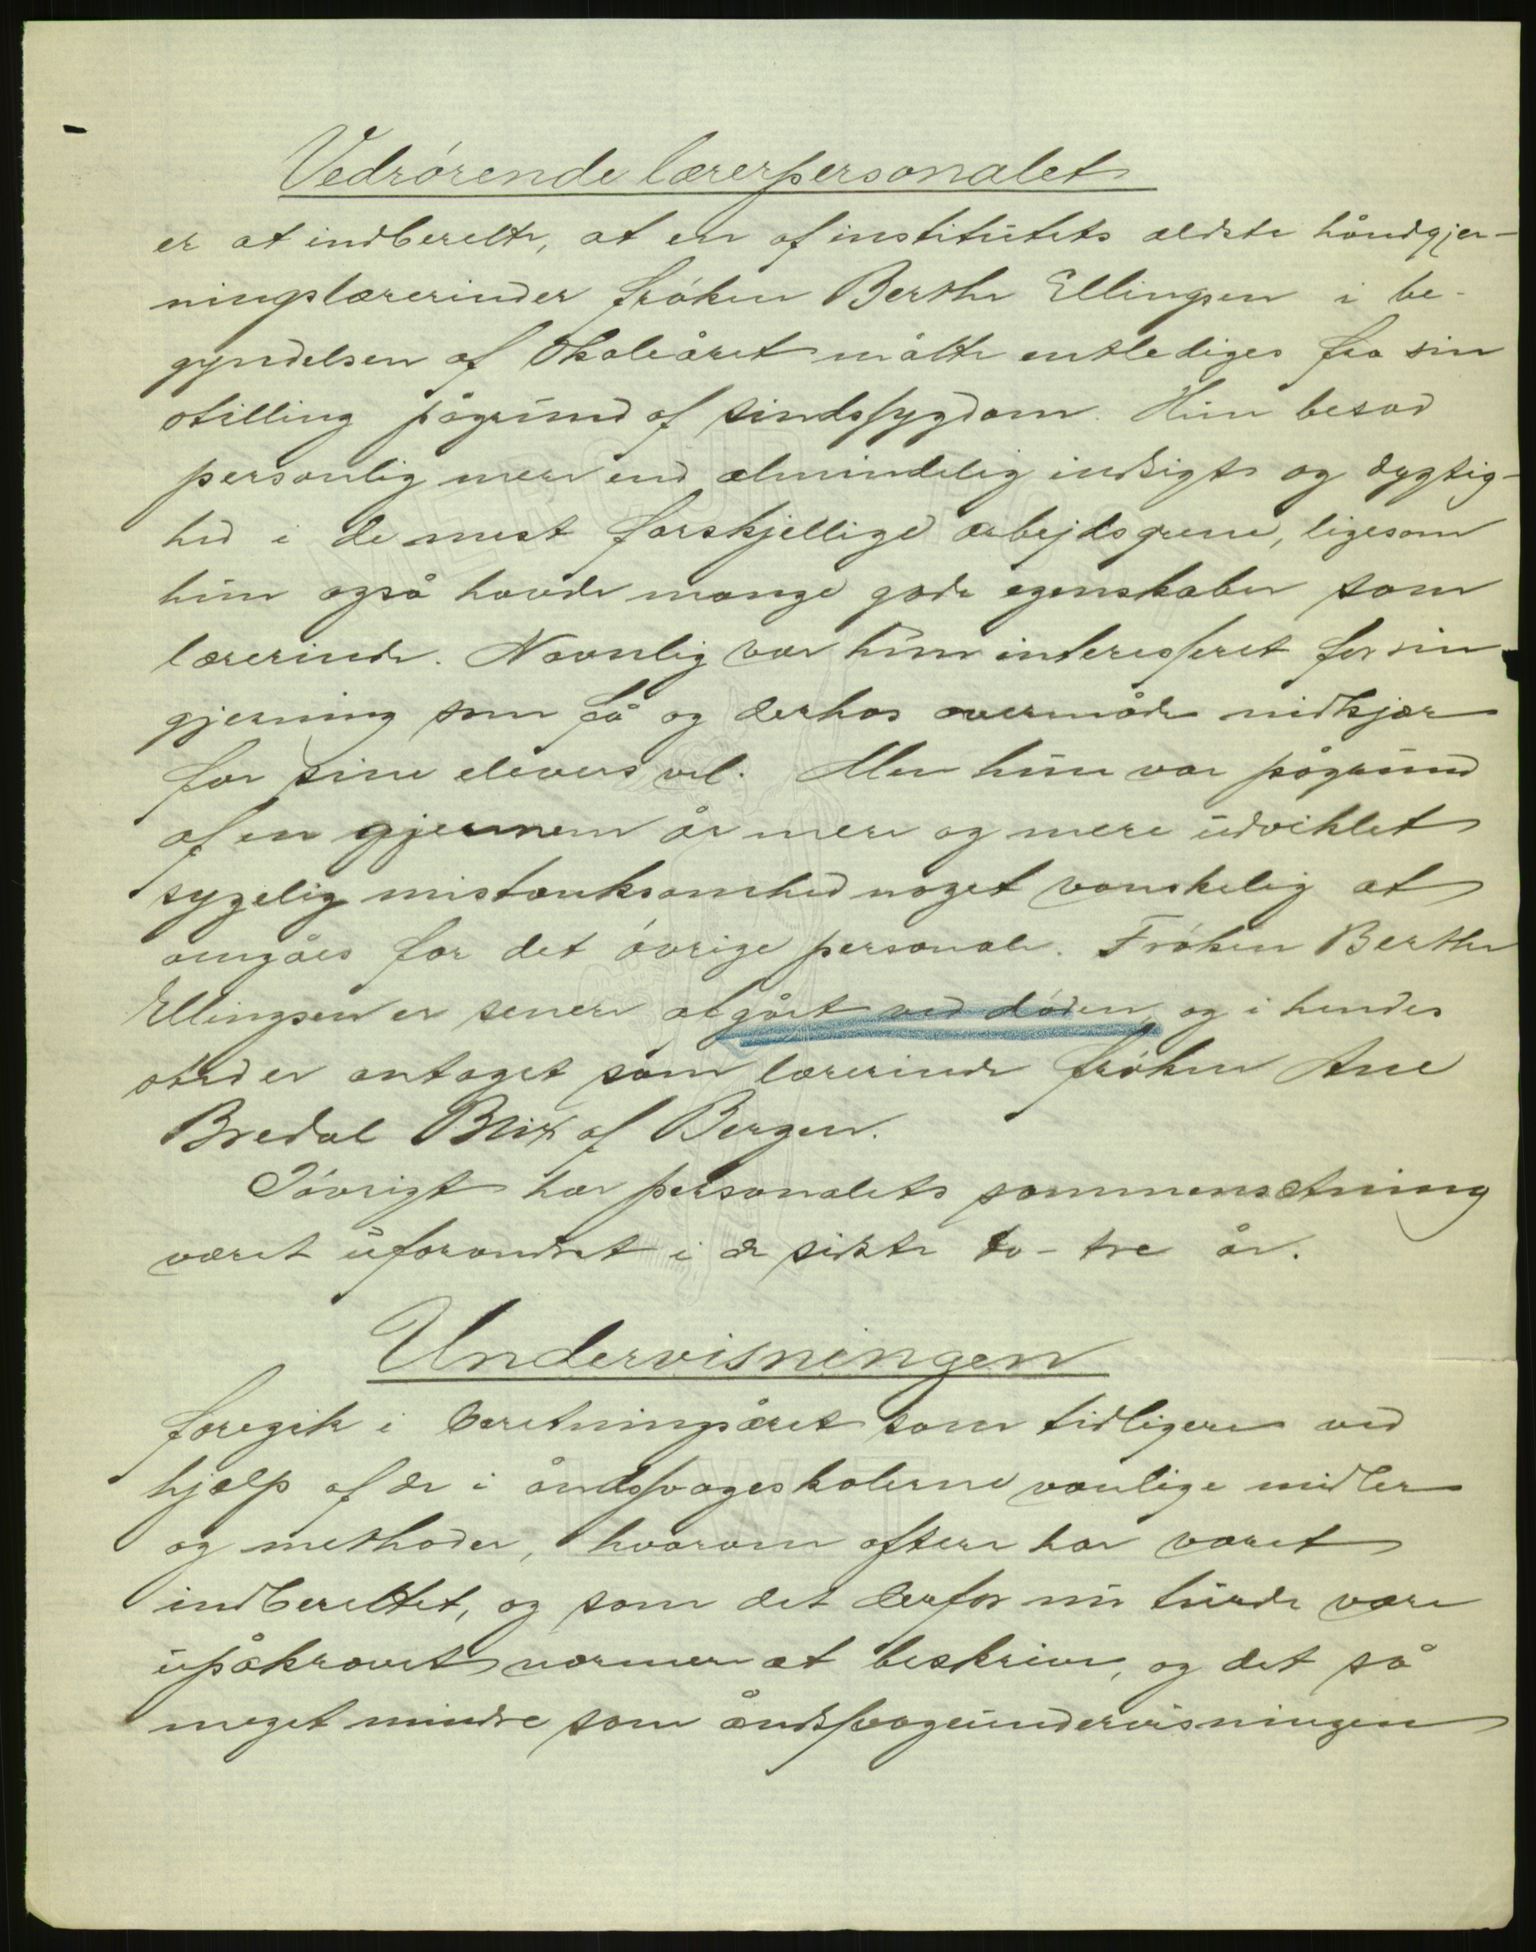 Vedrørende lærerpersonalet
er at indberette, at en af institutets ældste håndgjer-
ningslærerinder frøken Berthe Ellingsen i be-
gyndelsen af skoleåret måtte entlediges fra sin
stilling pågrund af sindssygdom. Hun besad
personlig mere end almindelig indsigt og dygtig-
hed i de mest forskjellige arbejdsgrene, ligesom
hun også havde mange gode egenskaber som
lærerinde. Navnlig var hun interesseret for sin
gjerning som få og derhos overmåde nidkjær
for sine elevers vel. Men hun var pågrund
af en gjennem år mere og mere udviklet
sygelig mistænksomhed noget vanskelig at
omgåes for det øvrige personale. Frøken Berthe
Ellingsen er senere afgået ved døden, og i hendes
sted er antaget som lærerinde frøken Ane
Bredal Blix af Bergen.
Iøvrigt har personalets sammensætning
været uforandret i de sidste to-tre år.
Undervisningen
foregik i beretningsåret som tidligere ved
hjælp af de i åndssvageskolerne vanlige midler
og methoder, hvorom oftere har været
indberettet, og som det derfor nu turde være
upåkrævet nærmere at beskrive, og det så
meget mindre som åndssvageundervisningen